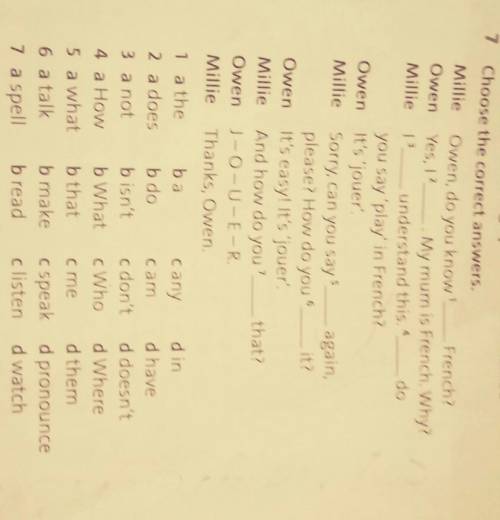 7 Choose the correct answers.
Millie Owen, do you know 1____ French?
Owen Yes, I 2____. My mum is French. Why?
Millie I 3____ understand this. 4____ do
you say 'play' in French?
Owen It's 'jouer'.
Millie Sorry, can you say 5____ again,
please? How do you 6____ it?
Owen It's easy! It's 'jouer'.
Millie And how do you 7____ that?
Owen J – O – U – E – R.
Millie Thanks, Owen.
1 a the b a c any d in
2 a does b do c am d have
3 a not b isn't c don't d doesn't
4 a How b What c Who d Where
5 a what b that c me d them
6 a talk b make c speak d pronounce
7 a spell b read c listen d watch